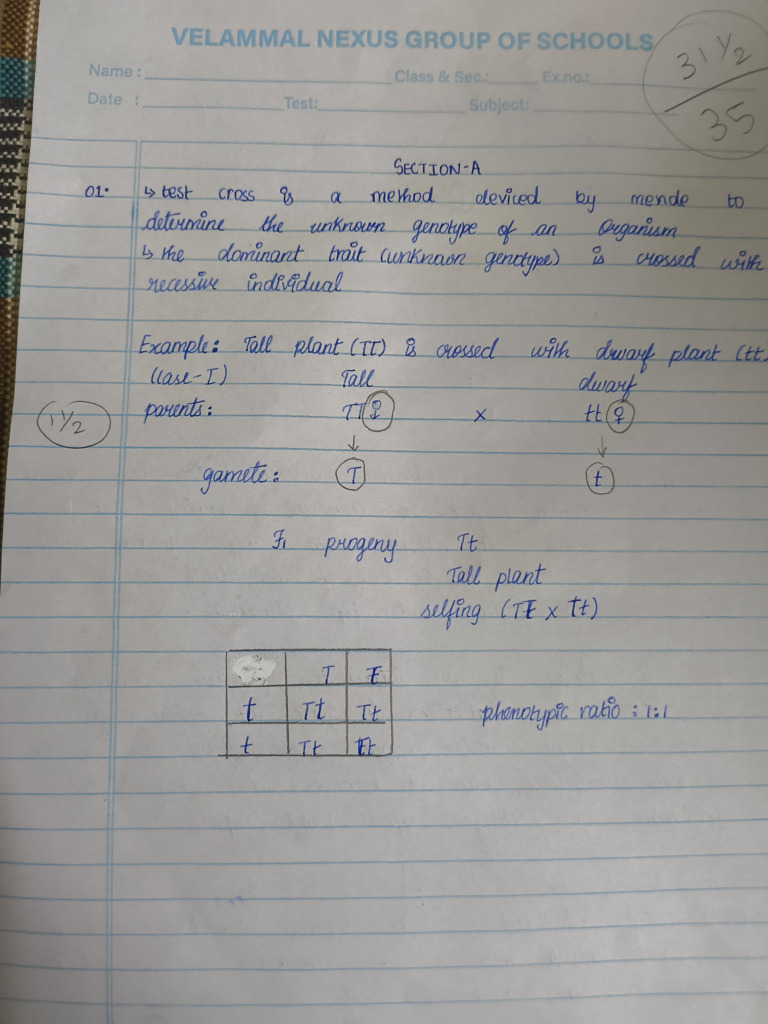 VELAMMAL NEXUS GROUP OF SCHOOLS
Name : Class & Sec.: Ex.no.:
Date : Test: Subject:
31 1/2
35
SECTION-A
01. ↳ test cross is a method deviced by mende to
determine the unknown genotype of an Organism
↳ the dominant trait (unknown genotype) is crossed with
recessive individual
Example: Tall plant (TT) is crossed with dwarf plant (tt)
(case-I) Tall dwarf
1 1/2 parents: TT ♀ x tt ♀
↓ ↓
gamete: T t
F1 progeny Tt
Tall plant
selfing (Tt x Tt)
T t
t Tt Tt phenotypic ratio : 1:1
t Tt tt